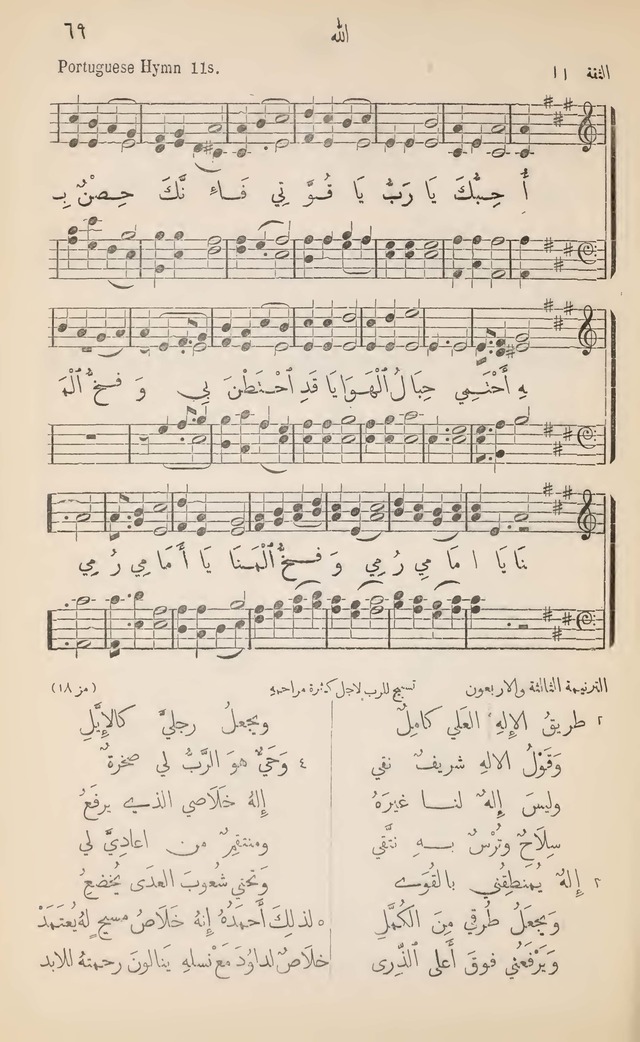 ٦٩
الله
Portuguese Hymn 11s.
الثقة ١١
أُ حِبُّكَ يَا رَبُّ يَا قُوَّ تِي فَاءِ نَّكَ حِصْنٌ بِـ
هِ أَحْتَمِي حِبَالُ ٱلْهَوَايَا قَدِ ٱحْتَطْنَ بِي وَ فَخُّ ٱلْمَ
نَايَا ا مَا مِي رُمِي وَ فَخُّ ٱلْمَنَا يَا أَ مَا مِي رُ مِي
الترنيمة الثالثة والاربعون
تسبيح للرب لاجل كثرة مراحمه
(مز ١٨)
٢ طريقُ الإلهِ العَلي كامِلٌ
وَقَوْلُ الالهِ شريفٌ نقي
وليسَ إِلهٌ لنا غيرَهُ
سِلَاحٌ وتُرْسٌ بهِ نتَّقي
٢ إِلهٌ يُمنطِقُني بالقُوَے
وَيجعَلُ طُرقي مِنَ الكُمَّلِ
وَيَرْفَعُني فوقَ أَعلى الذُّرى
ويجعلُ رجليَّ كالإِيَّلِ
٤ وَحَيٌّ هوَ الرَّبُّ لي صخرةٌ
إِلهُ خَلَاصي الذي يرفَعُ
ومنتقِمٌ من اعاديَّ لي
وَتحتي شُعوبَ العدَى يُخضعُ
٥ لذلكَ أَحمَدُهُ إِنهُ خَلَاصُ مسيحٍ لهُ يُعتَمَدْ
خلاصٌ لداوُدَ مَعْ نسلهِ ينالونَ رحمتهُ للابد